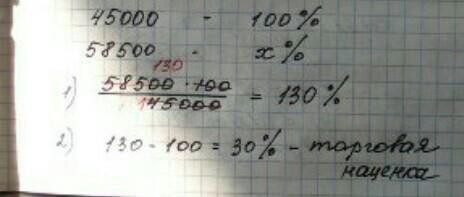 45000 - 100%
58500 - x%
130
1) 58500 · 100 / 145000 = 130%
2) 130 - 100 = 30% - торговая
наценка